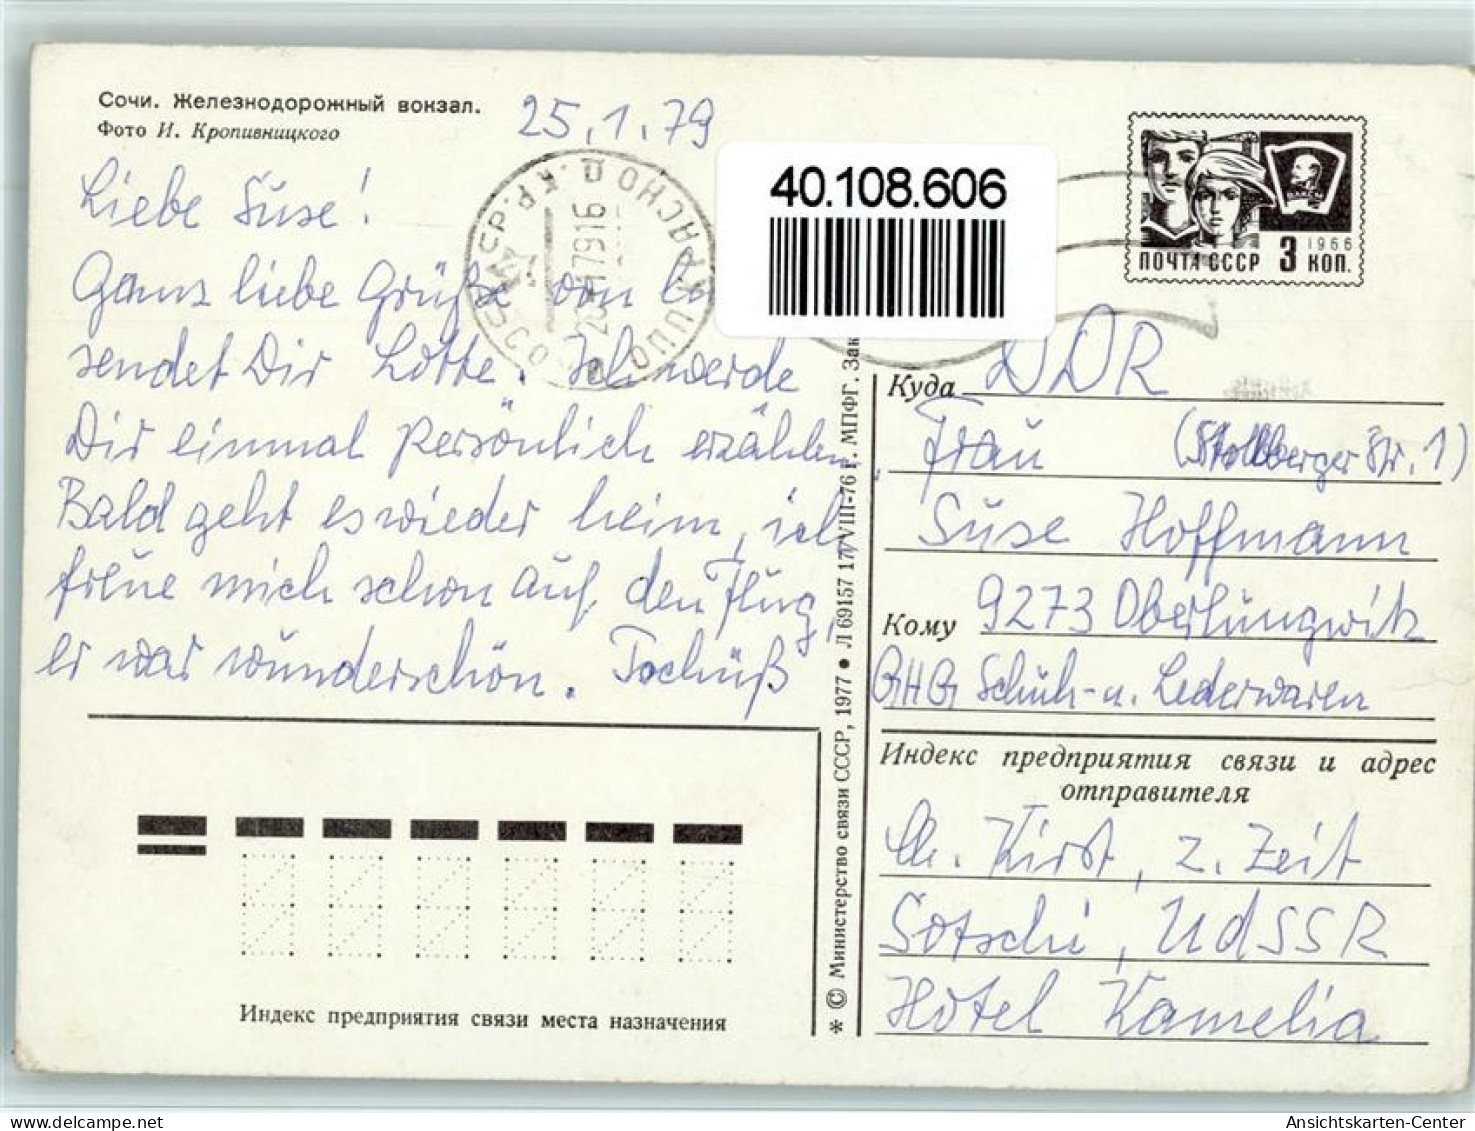 Сочи. Железнодорожный вокзал.
Фото И. Кропивницкого
25.1.79
40.108.606
1966
ПОЧТА СССР 3 КОП.
Liebe Suse!
Ganz liebe Grüße von
sendet Dir Lotte. Ich werde
Dir einmal persönlich erzählen.
Bald geht es wieder heim, ich
freue mich schon auf den Flug,
er war wunderschön. Tschüß
Куда DDR
Frau (Stollberger Str. 1)
Suse Hoffmann
Кому 9273 Oberlungwitz
GHG Schuh- u. Lederwaren
Индекс предприятия связи и адрес
отправителя
Ch. Kirst, z. Zeit
Sotschi, UdSSR
Hotel Kamelia
Индекс предприятия связи места назначения
* © Министерство связи СССР, 1977 ● Л 69157 17/VIII-76 г. МПФГ. Зак
Ansichtskarten-Center